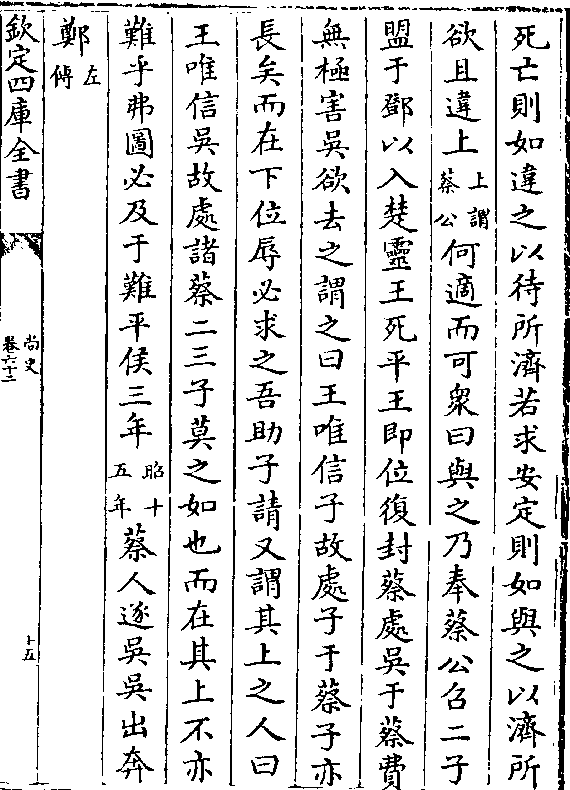 死亡則如違之以待所濟若求安定則如與之以濟所
欲且違上上謂蔡公何適而可衆曰與之乃奉蔡公召二子
盟于鄧以入楚靈王死平王即位復封蔡處吳于蔡費
無極害吳欲去之謂之曰王唯信子故處子于蔡子亦
長矣而在下位辱必求之吾助子請又謂其上之人曰
王唯信吳故處諸蔡二三子莫之如也而在其上不亦
難乎弗圖必及于難平侯三年昭十五年蔡人逐吳吳出奔
鄭左傳
欽定四庫全書
尚史
卷六十二
十五